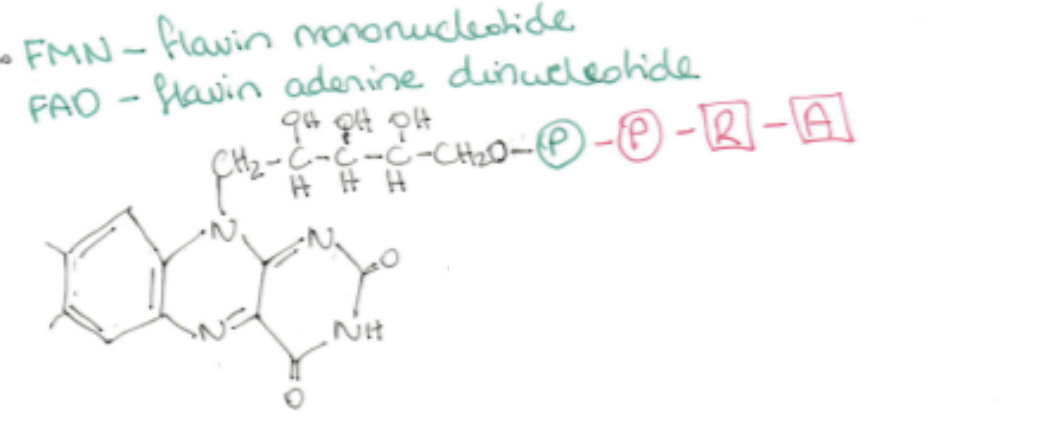 FMN - flavin mononucleotide
FAD - flavin adenine dinucleotide
OH OH OH
CH2-C-C-C-CH2O-P-P-R-A
H H H
N N
O
N NH
O